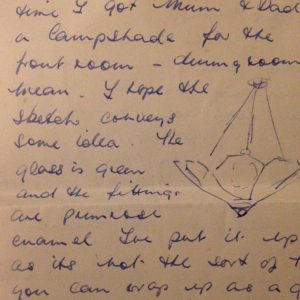 time I got Mum & Dad
a lampshade for the
front room – dining room
mean. I hope the
sketch conveys
some idea. The
glass is green
and the fittings
are primrose
enamel I've put it up
as its not the sort of
you can wrap up as a